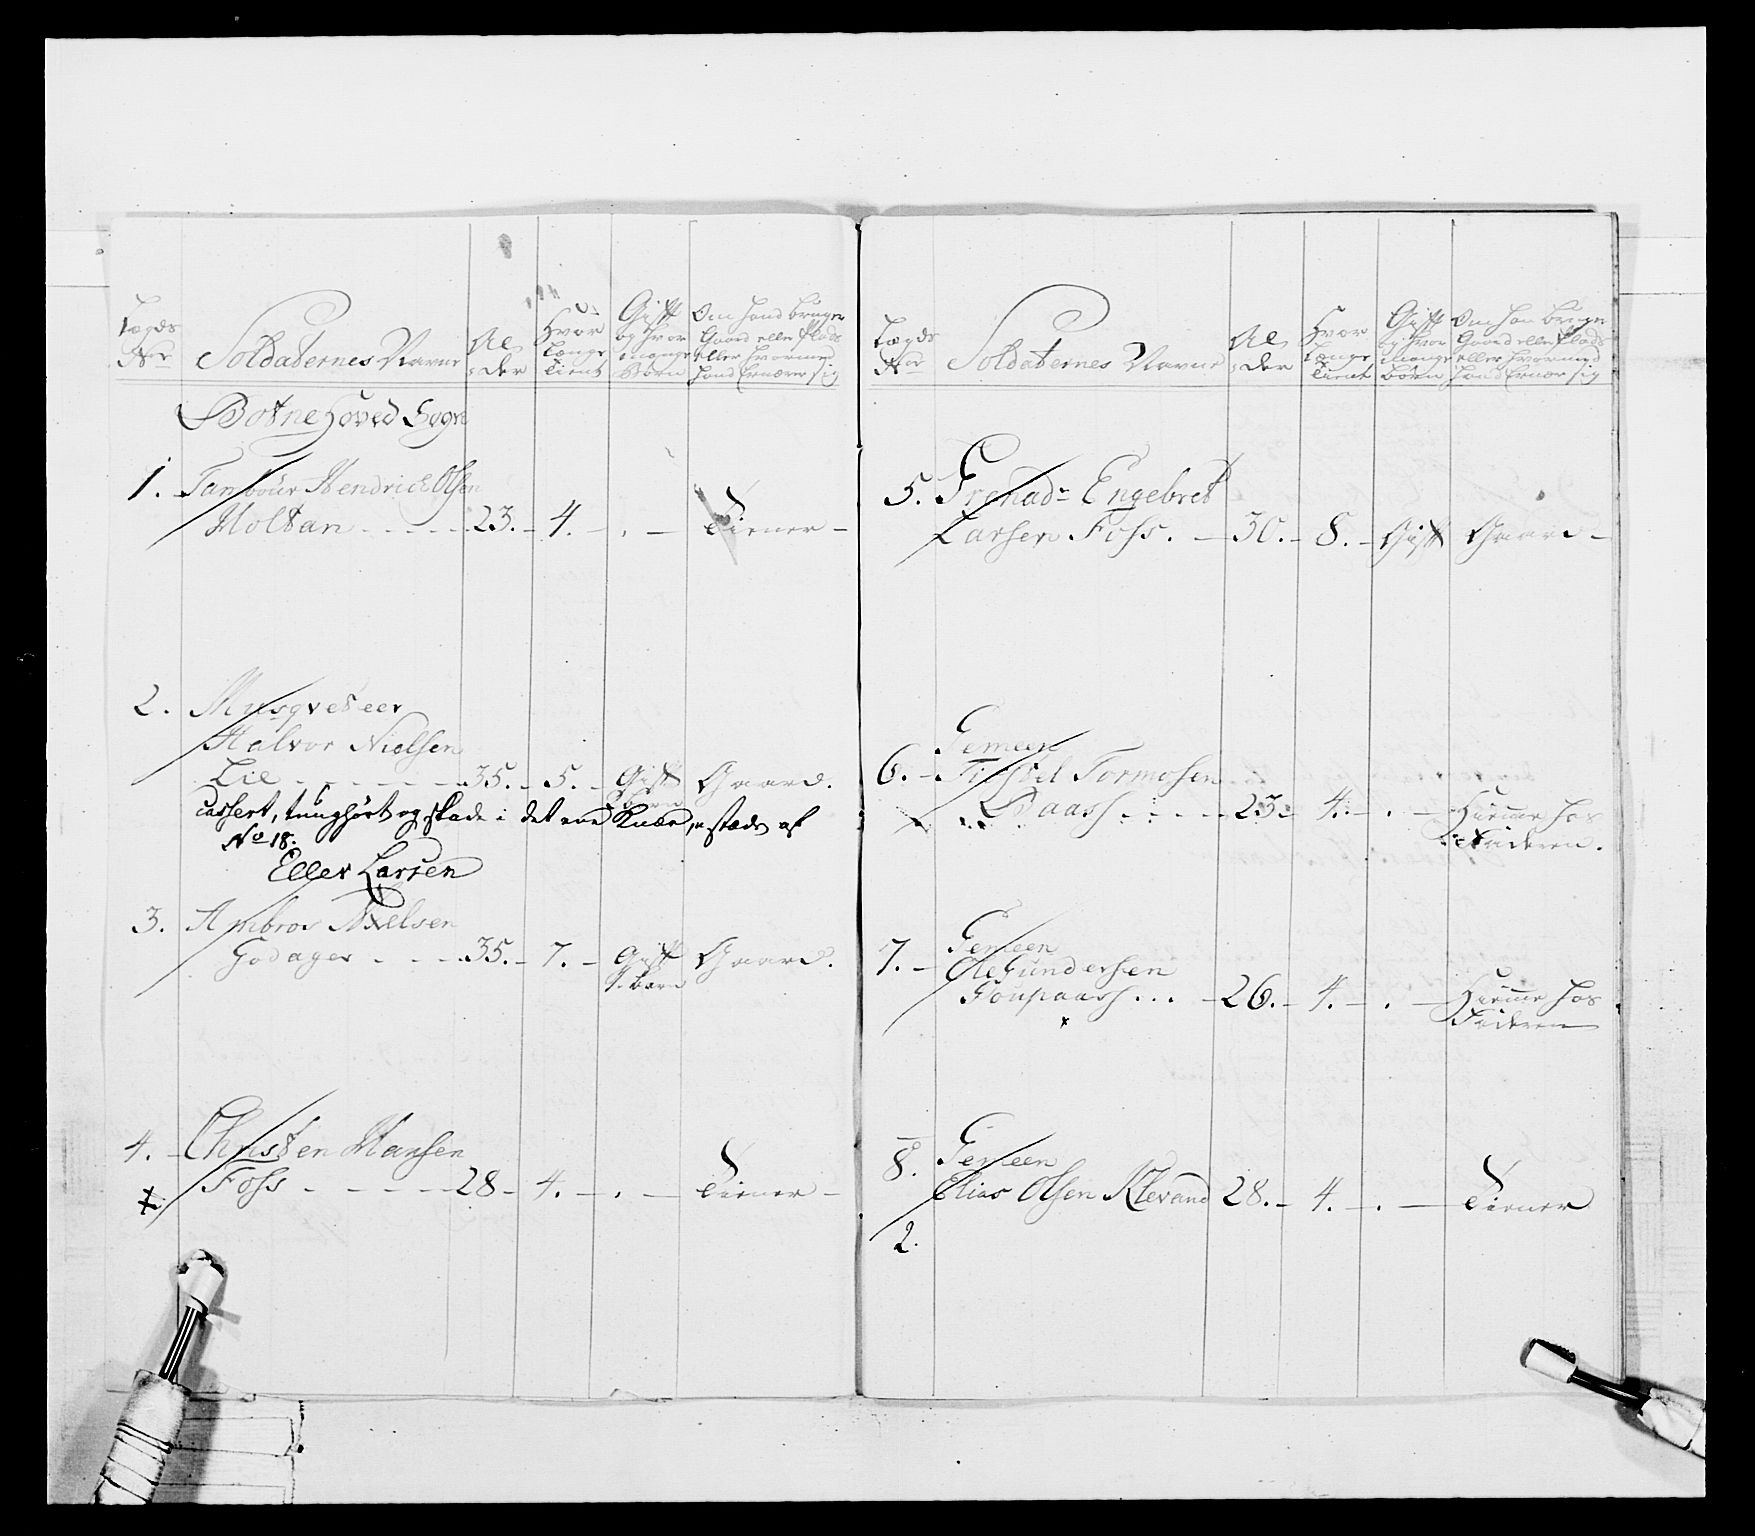 Lægds
Nr
Soldaternes Navne
Al
der
Hvor
længe
tient
Gift
og hvor
mange
Børn
Om hand bruger
Gaard eller Plads
eller hvormed
hand Ernærer sig
Botne Hoved Sogn
1. Tambour Hendrich Olsen
Holtan - - - - 23. - 4. - . - Tiener -
2. Musqveteer
Halvor Nielsen
Lie - - - - - 35. - 5. - Gift Gaard.
Cassert, tunghørt og skade i det ene Knæe, i stæden af
No 18.
Eller Larsen
3. Ambros Nielsen
Godager - - - 35. - 7. - Gift Gaard.
1. barn
4. Christen Hansen
Foss - - - - - 28 - 4. - . - Tiener -
Lægds
Nor
Soldaternes Navne
Al
der
Hvor
længe
tient
Gift
og hvor
mange
børn
Om han bruger
Gaard eller Plads
eller hvormed
hand Ernær sig
5. Grenadr Engebret
Larsen Foss. - 30. - 8. - Gift Gaard -
Gemeen
6. - Tormosen
Baass - - - - 23 - 4. - . - Hiemme hos
Faderen.
7. - Gemeen
Ole Gundersen
Foupaass... - 26. - 4. - . - Hiemme hos
Faderen
8. Gemeen
Elias Olsen Klevand 28. - 4. - . - Tiener
2.